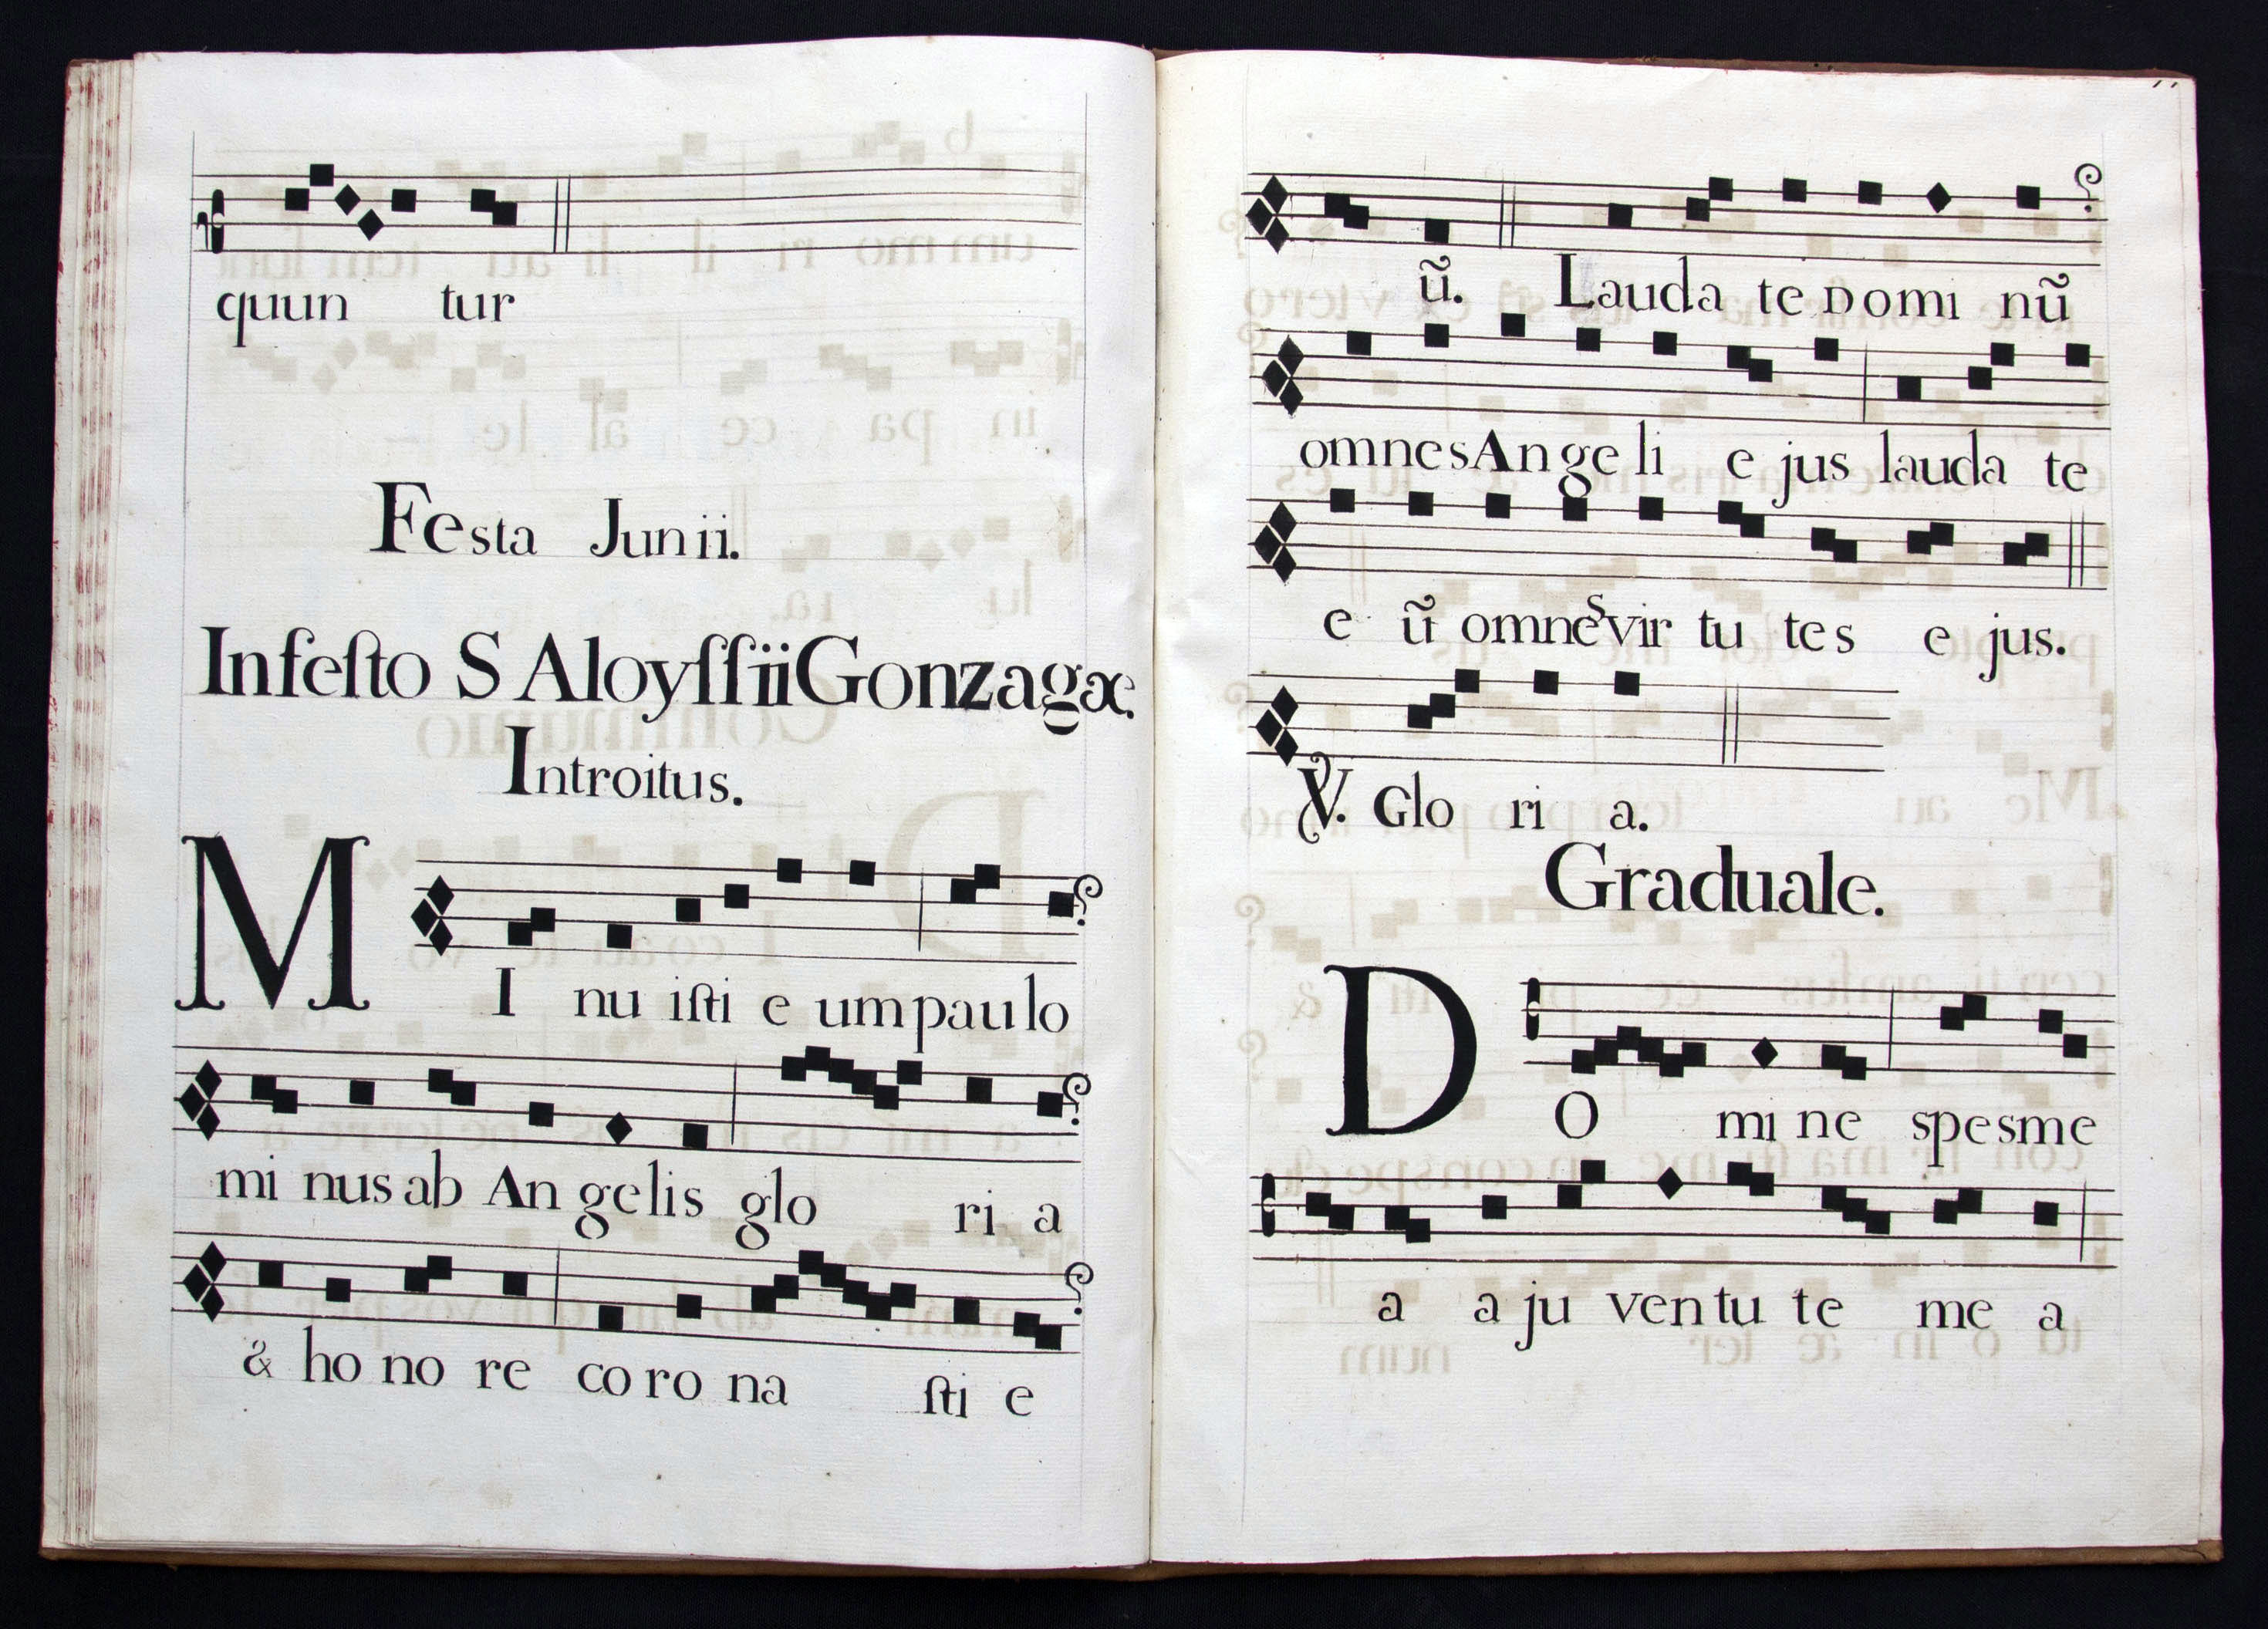 quun tur
Festa Junii.
In feſto S Aloyſſii Gonzagæ.
Introitus.
M I nu iſti e um pau lo
mi nus ab An ge lis glo ri a
& ho no re co ro na ſti e
ũ. Lauda te Domi nũ
omnes An ge li e jus lauda te
e ũ omnes vir tu tes e jus.
℣. Glo ri a.
Graduale.
D O mi ne spes me
a a ju ven tu te me a